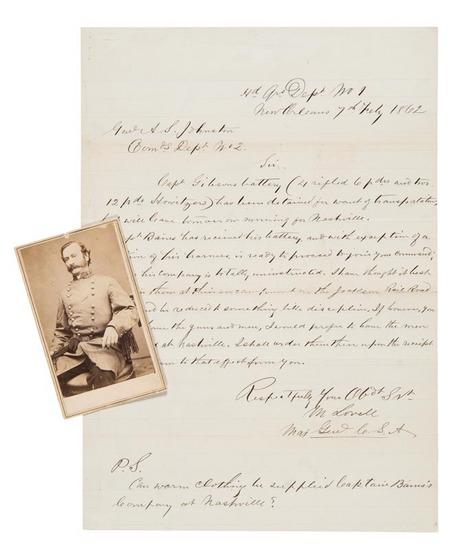 Hd Qrs Dept No 1
New Orleans 7th Feby 1862
Genl A. S. Johnston
Comdg Dept No 2.
Sir
Capt Gibsons battery (4 rifled 6 pdrs and two
12 pdr Howitzers) has been detained for want of transportation,
will leave tomorrow morning for Nashville.
Bains has received his battery, and with exception of a
of his harness, is ready to proceed to join your command;
his company is totally uninstructed. I have thought it best
them at this on the Jackson Rail Road
be reduced to something like discipline. If however, you
the guns and men, I would prefer to have the men
at Nashville. I shall order them then upon the receipt
to that effect from you.
Respectfully Your Obdt Svt
M Lovell
Maj Genl C. S. A
P. S.
Can warm clothing be supplied Captain Bains's
Company at Nashville?